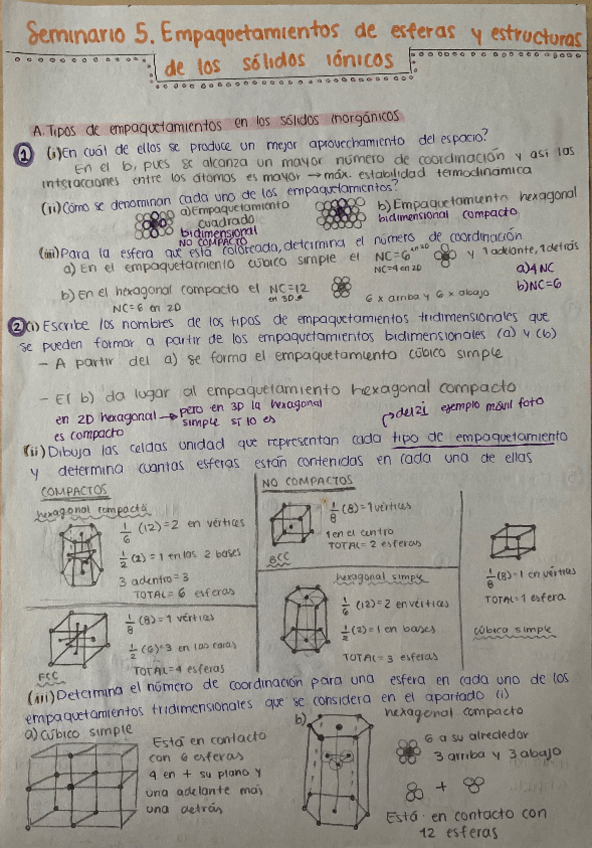 Seminario 5. Empaquetamientos de esferas y estructuras
de los sólidos iónicos
A. Tipos de empaquetamientos en los sólidos inorgánicos
1 (i) En cuál de ellos se produce un mejor aprovechamiento del espacio?
En el b, pues se alcanza un mayor número de coordinación y así las
interacciones entre los átomos es mayor → máx. estabilidad termodinámica
(ii) Cómo se denominan cada uno de los empaquetamientos?
a) Empaquetamiento
cuadrado
bidimensional
NO COMPACTO
b) Empaquetamiento hexagonal
bidimensional compacto
(iii) Para la esfera que está coloreada, determina el número de coordinación
a) En el empaquetamiento cúbico simple el NC=6 en 3D y 1 adelante, 1 detrás
NC=4 en 2D
a) 4 NC
b) En el hexagonal compacto el NC=12
en 3D
6 x arriba y 6 x abajo
b) NC=6
NC=6 en 2D
2 (i) Escribe los nombres de los tipos de empaquetamientos tridimensionales que
se pueden formar a partir de los empaquetamientos bidimensionales (a) y (b)
- A partir del a) se forma el empaquetamiento cúbico simple
- El b) da lugar al empaquetamiento hexagonal compacto
en 2D hexagonal → pero en 3D la hexagonal
es compacto
simple sí lo es
del 2i ejemplo móvil foto
(ii) Dibuja las celdas unidad que representan cada tipo de empaquetamiento
y determina cuantas esferas están contenidas en cada una de ellas
COMPACTOS
hexagonal compacta
1/6 (12)=2 en vértices
1/2 (2)=1 en las 2 bases
3 adentro=3
TOTAL= 6 esferas
1/8 (8)=1 vértices
1/2 (6)=3 en las caras
TOTAL=4 esferas
FCC
NO COMPACTOS
1/8 (8)=1 vértices
1 en el centro
TOTAL= 2 esferas
BCC
hexagonal simple
1/6 (12)=2 en vértices
1/2 (2)=1 en bases
TOTAL= 3 esferas
1/8 (8)=1 en vértices
TOTAL=1 esfera
cúbica simple
(iii) Determina el número de coordinación para una esfera en cada uno de los
empaquetamientos tridimensionales que se considera en el apartado (i)
a) cúbico simple
Está en contacto
con 6 esferas
4 en + su plano y
una adelante más
una detrás
b)
hexagonal compacto
6 a su alrededor
3 arriba y 3 abajo
+
Está en contacto con
12 esferas